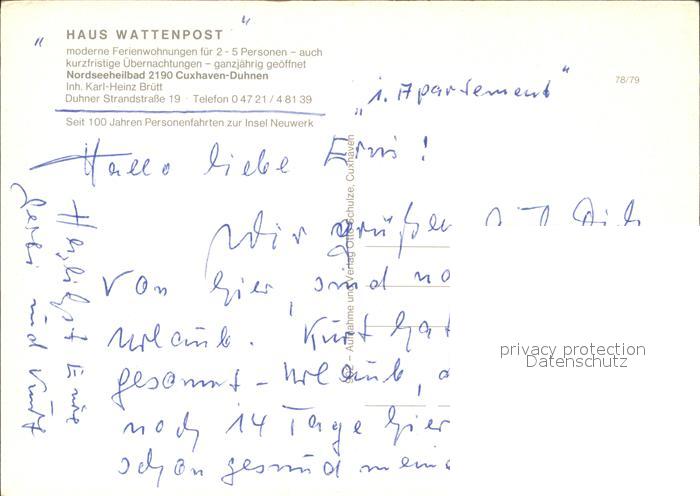 HAUS WATTENPOST
moderne Ferienwohnungen für 2 - 5 Personen – auch
kurzfristige Übernachtungen – ganzjährig geöffnet
Nordseeheilbad 2190 Cuxhaven-Duhnen
Inh. Karl-Heinz Brütt
Duhner Strandstraße 19 · Telefon 0 47 21 / 4 81 39
Seit 100 Jahren Personenfahrten zur Insel Neuwerk
78/79
„ i. Apartement "
Hallo liebe !
Wir grüßen Dich
von hier, sind no
Urlaub. Kurt hat
gesamt - Urlaub,
noch 14 Tage hier
schon gesund
Herzlichst Eure
und Kurt
Aufnahme und Verlag Otto Schulze, Cuxhaven
privacy protection
Datenschutz